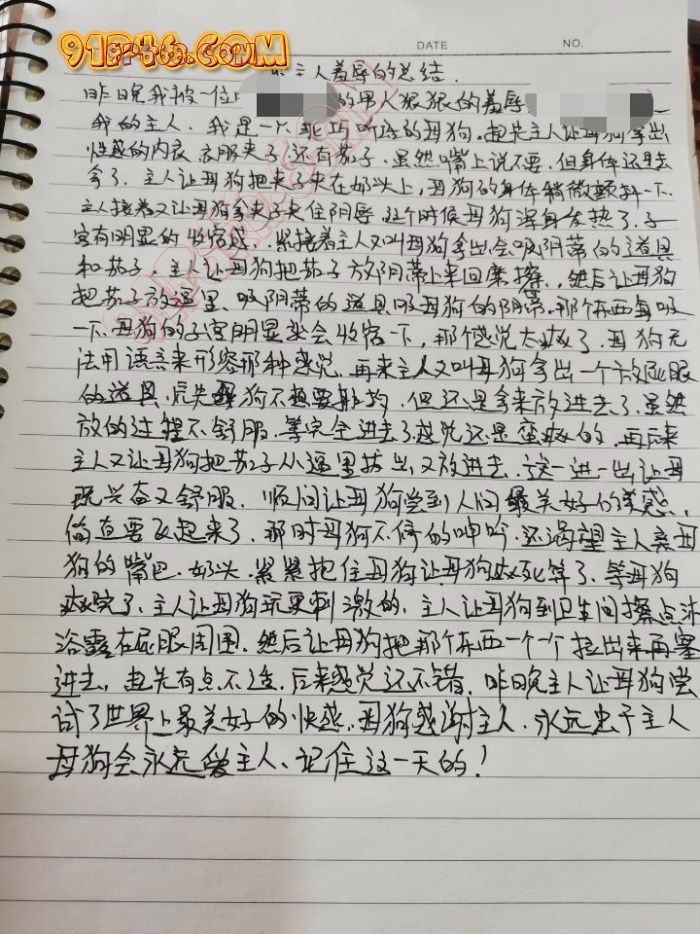 91P46.COM
DATE NO.
主人羞辱的总结.
昨晚我被一位 的男人狠狠的羞辱
我的主人.我是一只乖巧听话的母狗.起先主人让母狗拿出
性感的内衣 衣服夹子.还有茄子.虽然嘴上说不要.但身体还是去
拿了.主人让母狗把夹子夹在奶头上,母狗的身体稍微颤抖一下.
主人接着又让母狗拿夹子夹住阴唇 这个时候母狗浑身发热了.子
宫有明显的收宿感.紧接着主人又叫母狗拿出会吸阴蒂的道具
和茄子.主人让母狗把茄子放阴蒂上来回磨擦.然后让母狗
把茄子放逼里、吸阴蒂的道具吸母狗的阴蒂.那个东西每吸
一下.母狗的子宫明显就会收宿一下,那个感觉太爽了.母狗无
法用语言来形容那种感觉.再来主人又叫母狗拿出一个放屁眼
的道具. 母狗不想要 .但还是拿来放进去了.虽然
放的过程不舒服.等完全进去了感觉还是蛮爽的.再后来
主人又让母狗把茄子从逼里拔出又放进去.这一进一出让母
既兴奋又舒服. 顺间让母狗尝到人间最美好的诱惑.
要飞起来了.那时母狗不停的呻吟.还渴望主人 母
狗的嘴巴.奶头.紧紧把住母狗让母狗爽死算了.等母狗
爽完了.主人让母狗玩更刺激的.主人让母狗到卫生间擦点沐
浴露在屁眼周围.然后让母狗把那个东西一个个拉出来再塞
进去.起先有点不适.后来感觉还不错.昨晚主人让母狗尝
试了世界上最美好的快感.母狗感谢主人.永远忠于主人
母狗会永远爱主人、记住这一天的!